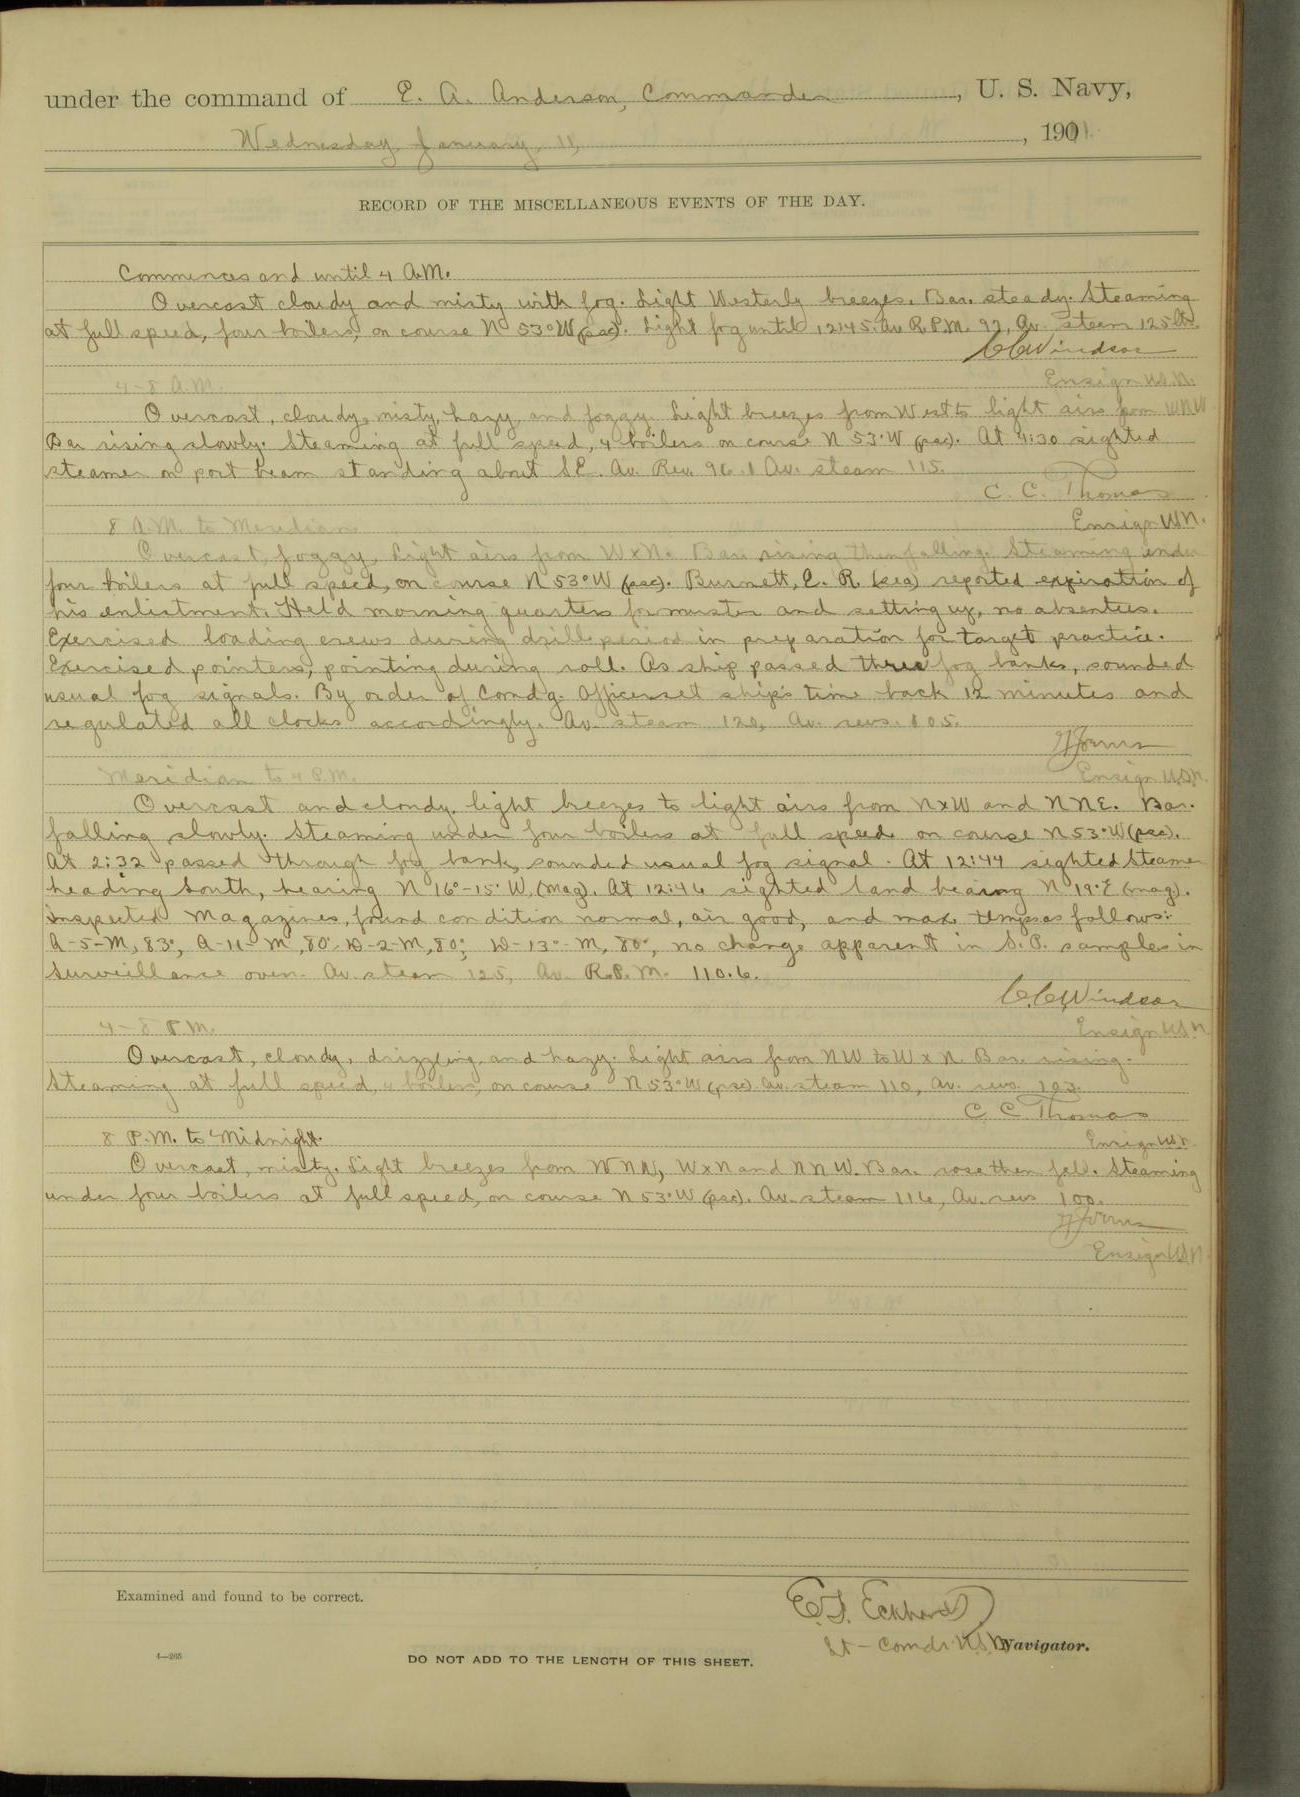 under the command of E. A. Anderson, Commander, U. S. Navy,
Wednesday, January, 11, 1911.
RECORD OF THE MISCELLANEOUS EVENTS OF THE DAY.
Commences and until 4 A.M.
Overcast cloudy and misty with fog. Light Westerly breezes. Bar. steady. Steaming
at full speed, four boilers, on course N 53° W (psc). Light fog until 12:45. Av. R.P.M. 92, Av. steam 125 lbs.
C C Windsor
4-8 A.M. Ensign U.S.N.
Overcast, cloudy, misty, hazy, and foggy. Light breezes from West to light airs from WNW
Bar rising slowly. Steaming at full speed, 4 boilers on course N 53° W (psc). At 4:30 sighted
steamer on port beam standing about SE. Av. Rev. 96.1 Av. steam 115.
C. C. Thomas
8 A.M. to Meridian Ensign USN.
Overcast, foggy, light airs from WxN. Bar. rising then falling. Steaming under
four boilers at full speed, on course N 53° W (psc). Burnett, E. R. (sea) reported expiration of
his enlistment. Held morning quarters for muster and setting up, no absentees.
Exercised loading crews during drill period in preparation for target practice.
Exercised pointers, pointing during roll. As ship passed three fog banks, sounded
usual fog signals. By order of Comd'g. Officer set ship's time back 12 minutes and
regulated all clocks accordingly. Av. steam 120, Av. revs. 105.
Meridian to 4 P.M. Ensign USN.
Overcast and cloudy, light breezes to light airs from NxW and NNE. Bar.
falling slowly. Steaming under four boilers at full speed on course N 53° W (psc).
At 2:32 passed through fog bank, sounded usual fog signal. At 12:44 sighted Steamer
heading South, bearing N 16°-15' W, (mag). At 12:46 sighted land bearing N 19° E (mag).
Inspected Magazines, found condition normal, air good, and max. temps as follows:
A-5-M, 83°, A-11-M, 80°, D-2-M, 80°, D-13-M, 80°, no change apparent in S.P. samples in
Surveillance oven. Av. steam 125, Av. R.P.M. 110.6.
C. C. Windsor
4-8 P.M. Ensign USN
Overcast, cloudy, drizzling, and hazy. Light airs from NW to W x N. Bar. rising.
Steaming at full speed, 4 boilers, on course N 53° W (psc) Av. steam 110, Av. revs. 103.
C C Thomas
8 P.M. to Midnight. Ensign USN.
Overcast, misty. Light breezes from WNW, WxN and NNW. Bar. rose then fell. Steaming
under four boilers at full speed, on course N 53° W (psc). Av. steam 116, Av. revs 100.
Ensign USN.
Examined and found to be correct.
E. L. Eckhardt
Lt-Comdr U.S.N. Navigator.
4—265
DO NOT ADD TO THE LENGTH OF THIS SHEET.